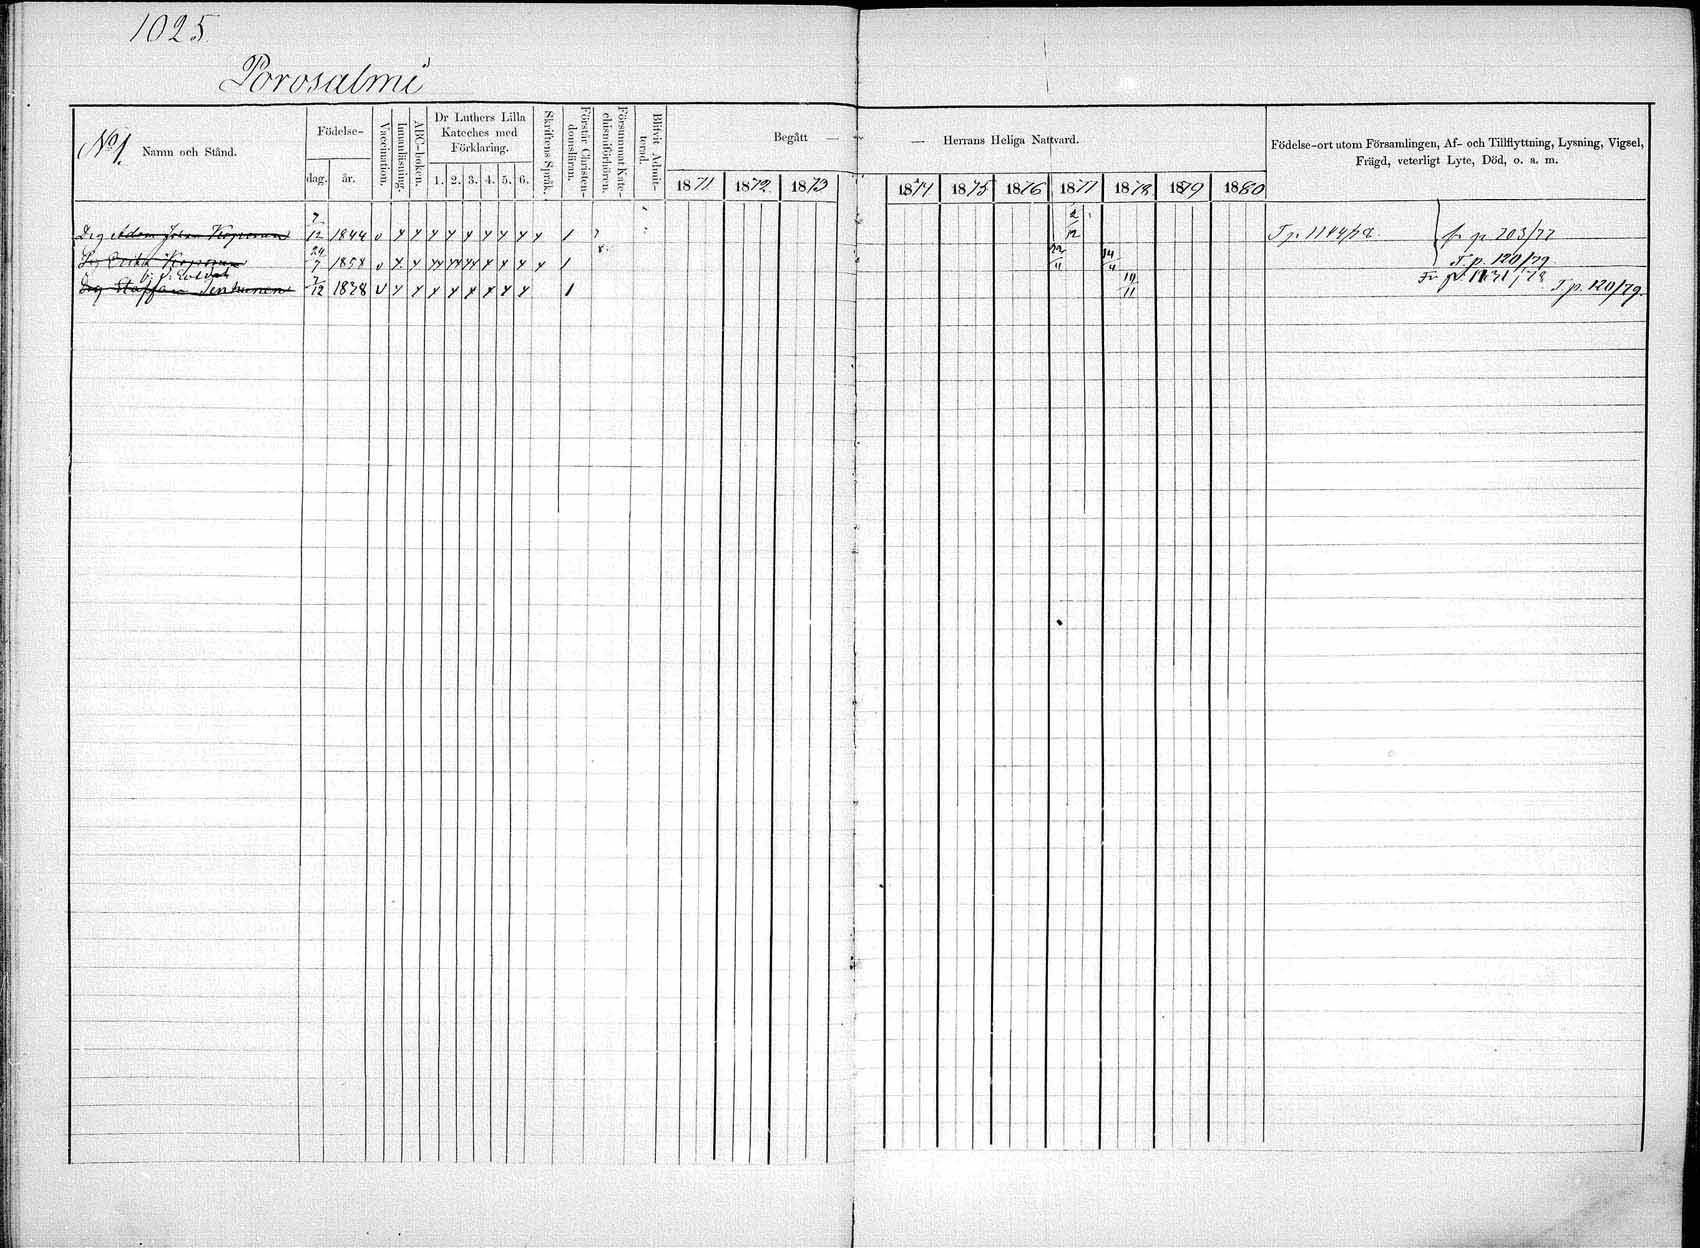 1025.
Porosalmi
No 1.
Namn och Stånd.
Födelse-
dag. år.
Vaccination.
Innanläsning.
ABC-boken.
Dr Luthers Lilla
Kateches med
Förklaring.
1. 2. 3. 4. 5. 6.
Skriftens Språk.
Förstår Christen-
domsläran.
Försummat Kate-
chismiförhören.
Blifvit Admit-
terad.
Begått —
1871 1872 1873
— Herrans Heliga Nattvard.
1874 1875 1876 1877 1878 1879 1880
Födelse-ort utom Församlingen, Af- och Tillflyttning, Lysning, Vigsel,
Frägd, veterligt Lyte, Död, o. a. m.
Drg Adam Johan Koponen 7/12 1844 v x x x x x x x x x 1 2/12 fr p 203/77
24/7 1858 v x x x x x x x x x 1 22/11 14/4 T. p. 120/79
Drg Staffan 7/12 1838 v x x x x x x x x 1 10/11 Fr p. 1131/78 T. p. 120/79.